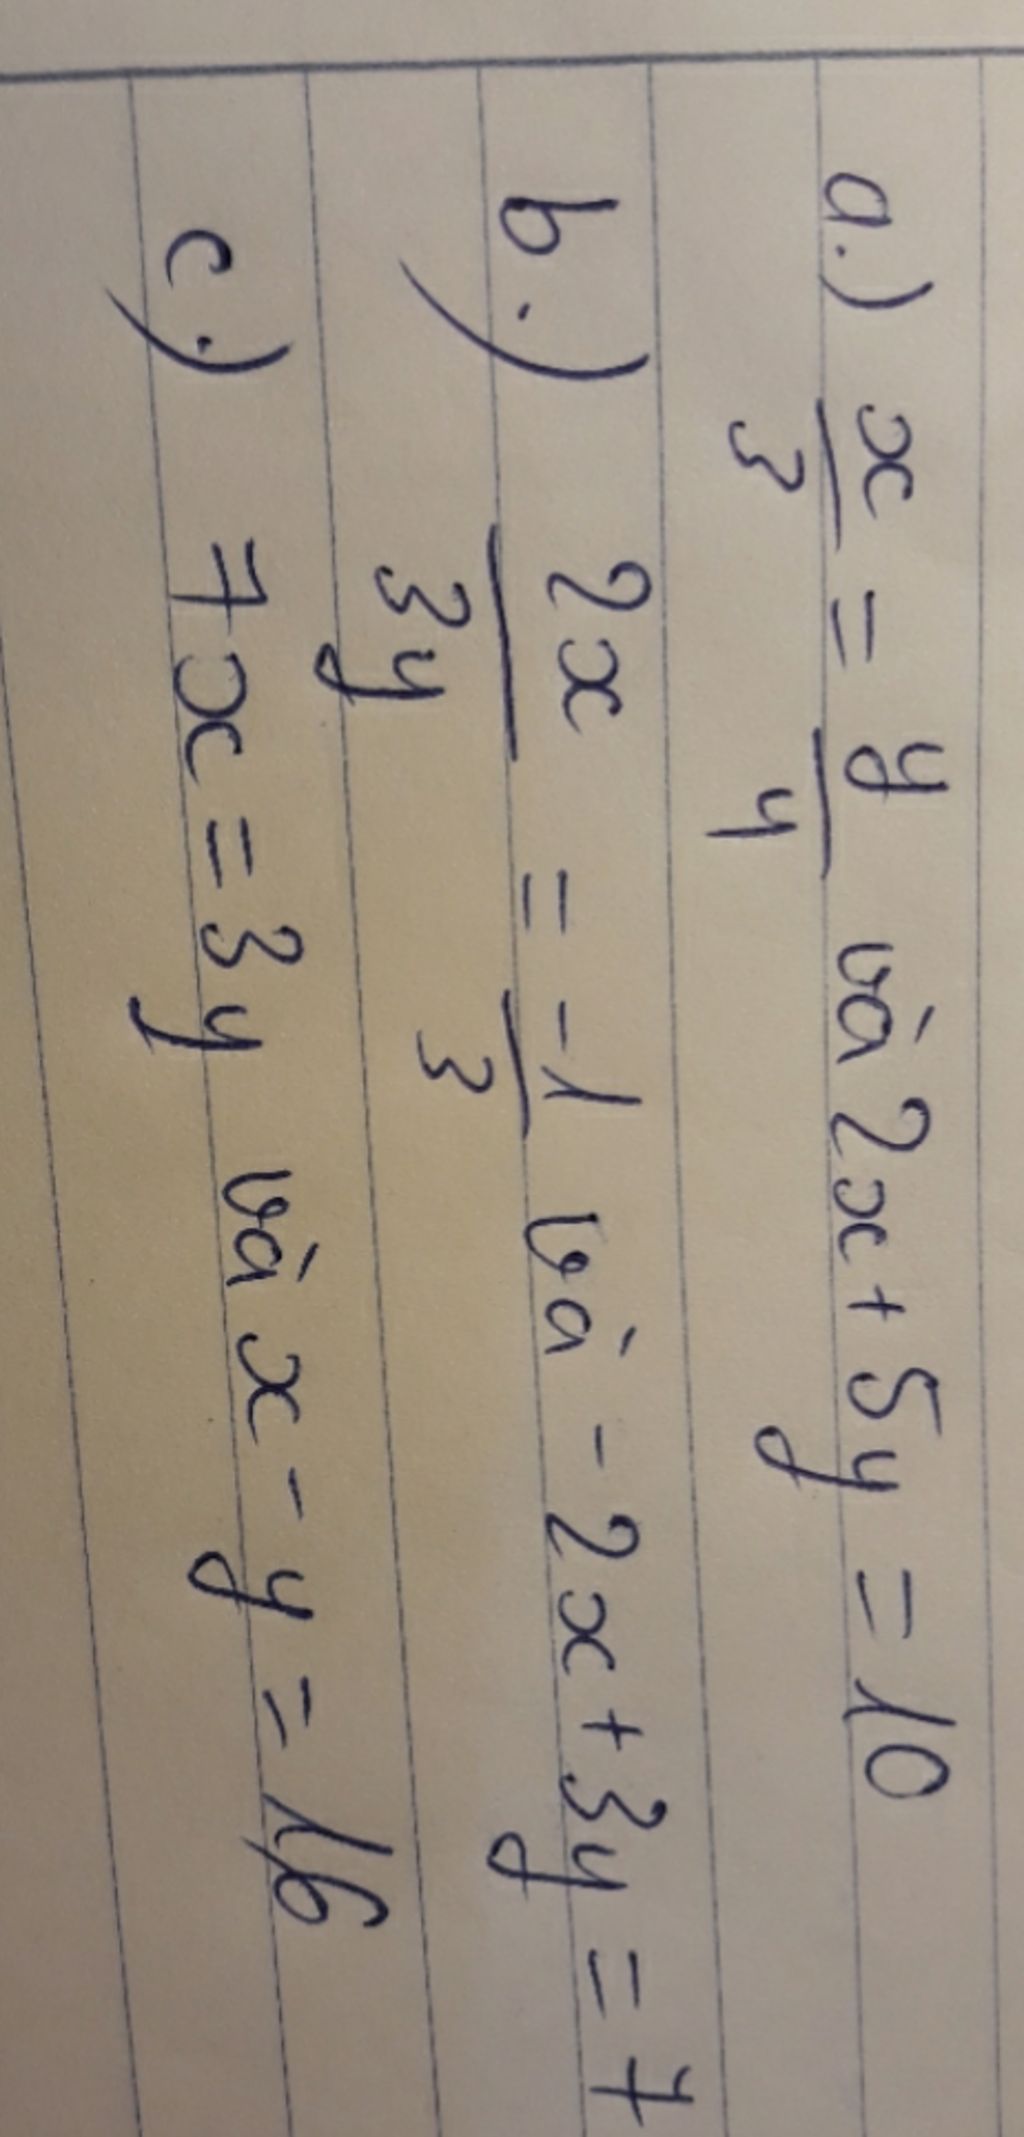 a.) x/3 = y/4 và 2x + 5y = 10
b.) 2x/3y = -1/3 và -2x + 3y = 7
c.) 7x = 3y và x - y = 16